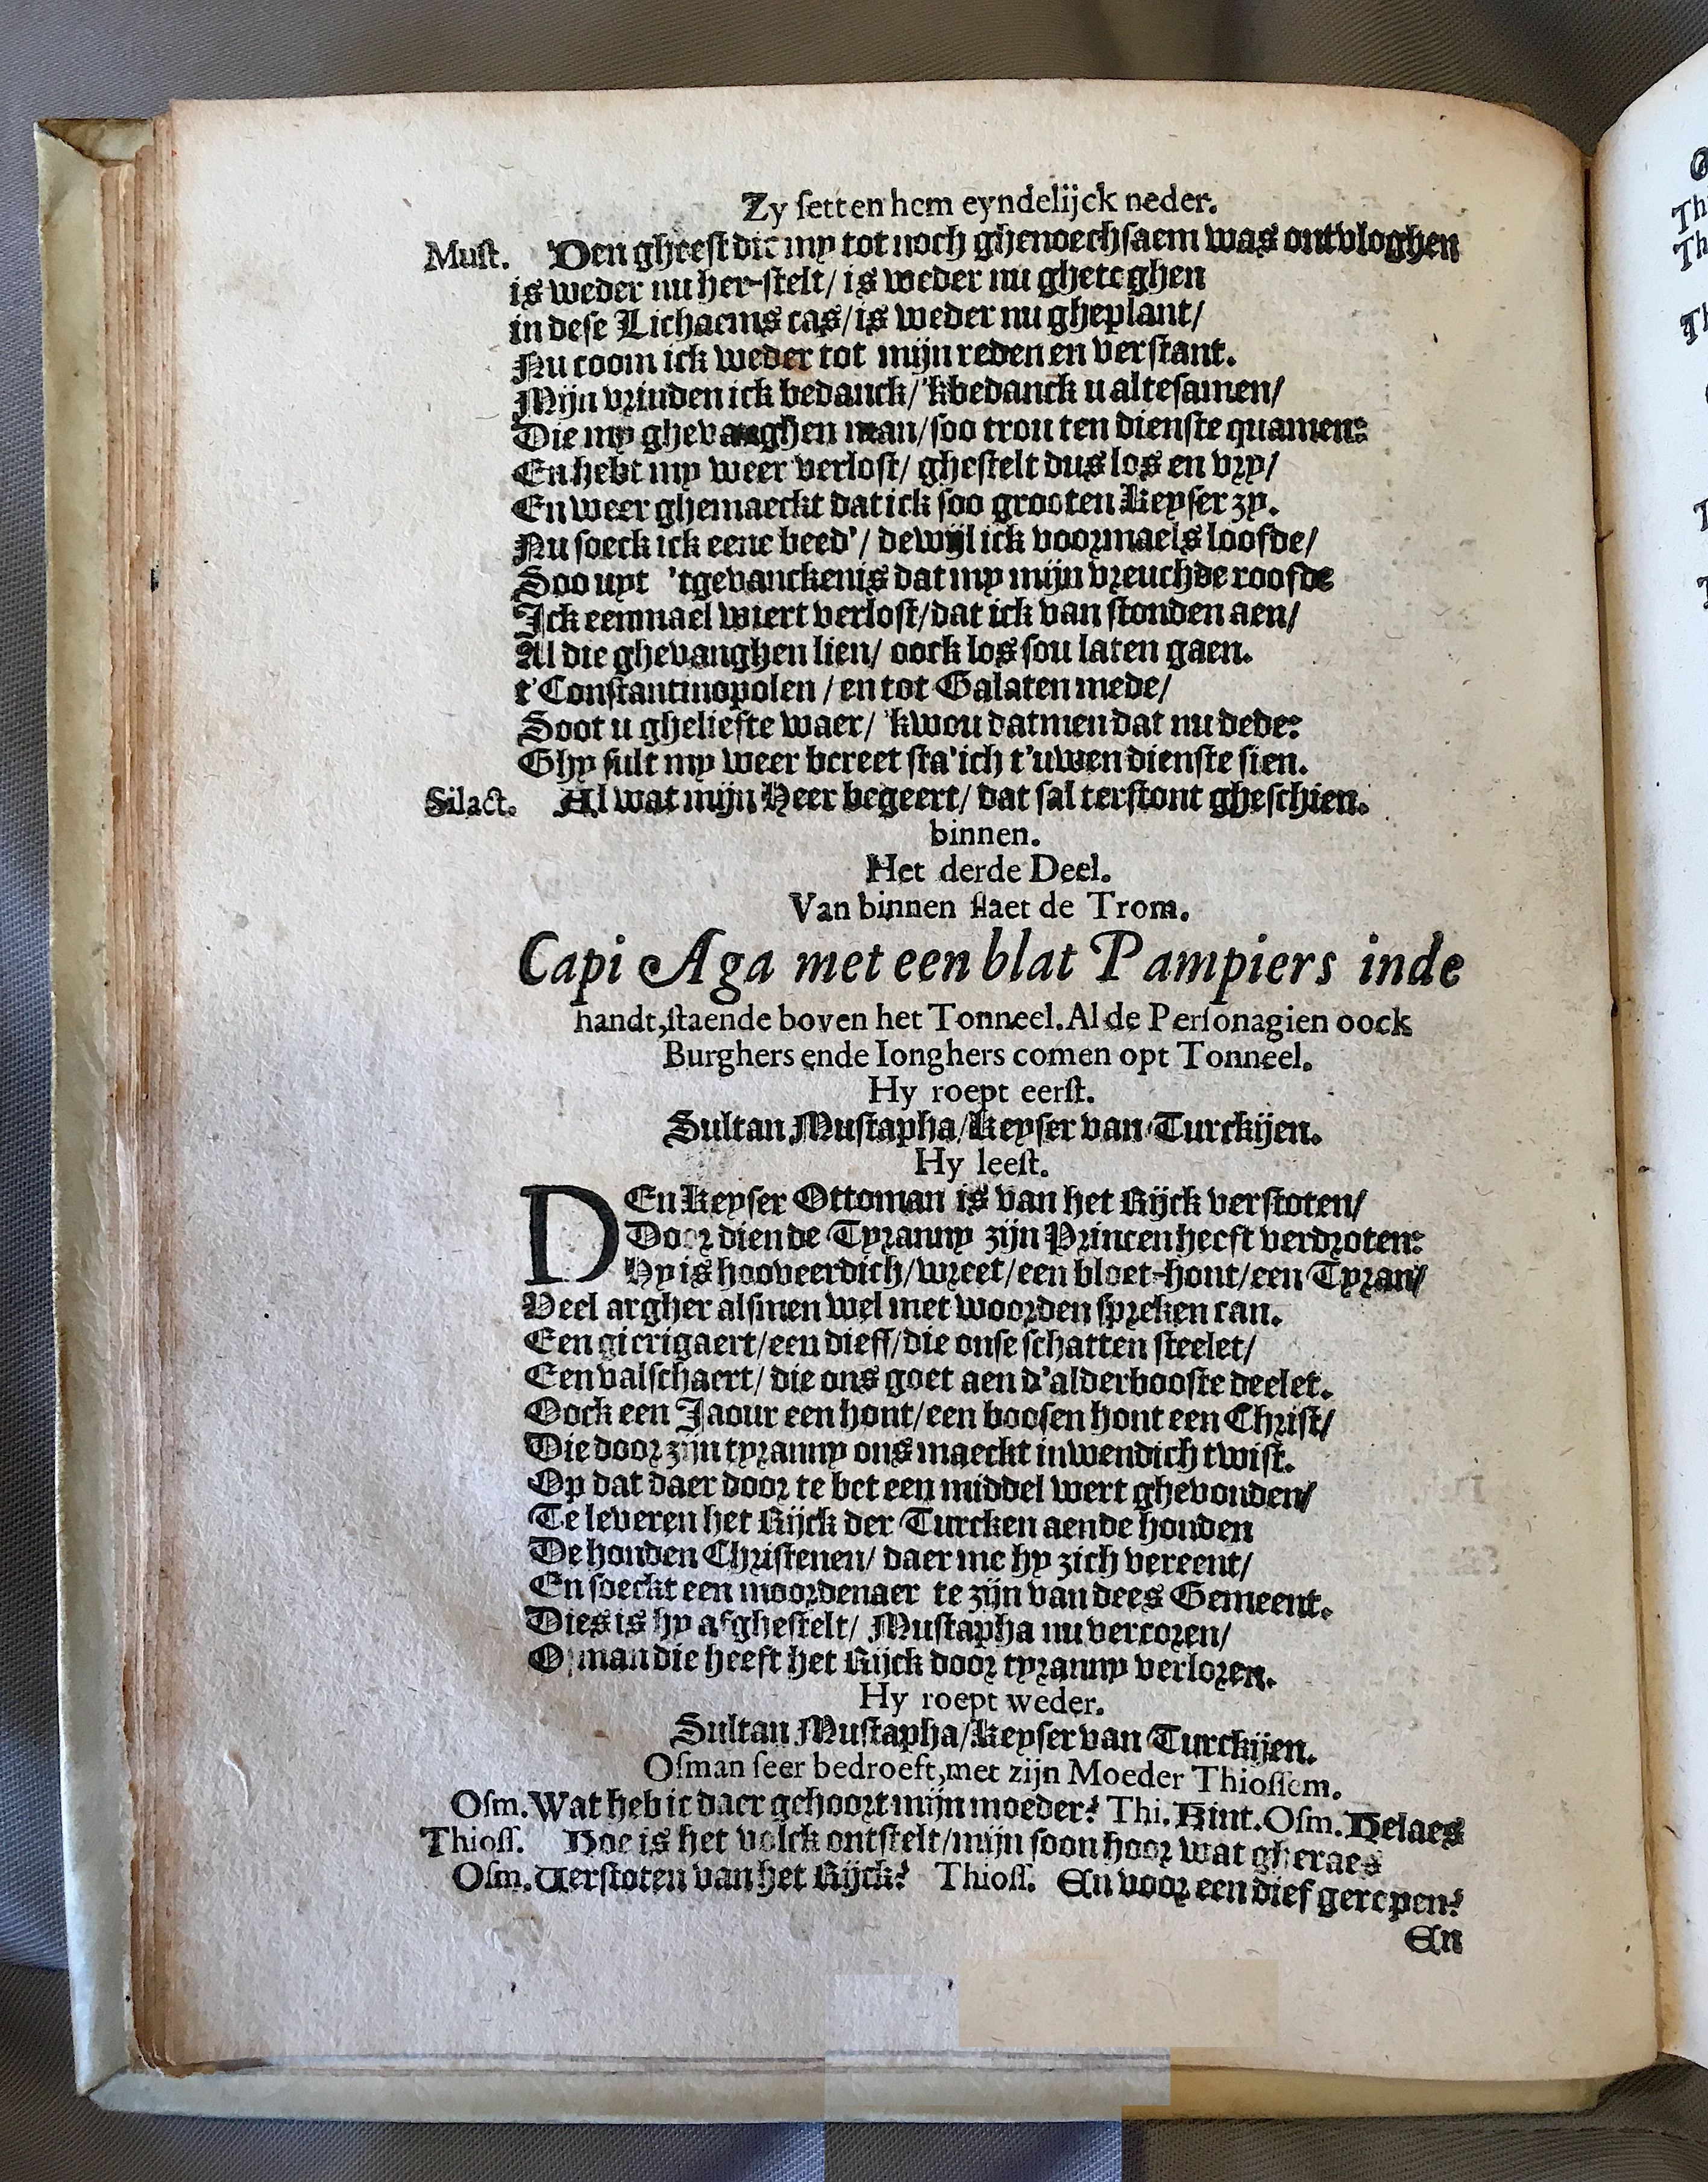 Zy setten hem eyndelijck neder.
Must. Den gheest die my tot noch ghenoechsaem was ontvloghen
is weder nu her-stelt/ is weder nu ghetoghen
in dese Lichaems cas/is weder nu gheplant/
Nu coom ick weder tot mijn reden en verstant.
Mijn vrinden ick bedanck/'kbedanck u altesamen/
Die my ghevanghen man/soo trou ten dienste quamen:
En hebt my weer verlost/ ghestelt dus los en vry/
En weer ghemaeckt dat ick soo grooten Keyser zy.
Nu soeck ick eene beed'/ dewijl ick voormaels loofde/
Soo uyt 'tgevanckenis dat my mijn vreuchde roofde
Ick eenmael wiert verlost/dat ick van stonden aen/
Al die ghevanghen lien/ oock los sou laten gaen.
t'Constantinopolen / en tot Galaten mede/
Soot u gheliefte waer/ 'kwou datmen dat nu dede:
Ghy sult my weer bereet sta'ich t'uwen dienste sien.
Silact. Al wat mijn Heer begeert/ dat sal terstont gheschien.
binnen.
Het derde Deel.
Van binnen slaet de Trom.
Capi Aga met een blat Pampiers inde
handt, staende boven het Tonneel. Al de Personagien oock
Burghers ende Ionghers comen opt Tonneel.
Hy roept eerst.
Sultan Mustapha/Keyser van Turckijen.
Hy leest.
DEn Keyser Ottoman is van het Rijck verstoten/
Door dien de Tyranny zijn Princen heeft verdroten:
Hy is hooveerdich/wreet/een bloet-hont/een Tyran/
Veel argher alsmen wel met woorden spreken can.
Een gierigaert/een dieff/die onse schatten steelet/
Een valschaert/ die ons goet aen d'alderbooste deelet.
Oock een Jaour een hont/een boosen hont een Christ/
Die door zijn tyranny ons maeckt inwendich twist.
Op dat daer door te bet een middel wert ghevonden/
Te leveren het Rijck der Turcken aende honden
De honden Christenen/ daer me hy zich vereent/
En soeckt een moordenaer te zijn van dees Gemeent.
Dies is hy afghestelt/ Mustapha nu vercoren/
Osman die heeft het Rijck door tyranny verloren.
Hy roept weder.
Sultan Mustapha/Keyser van Turckijen.
Osman seer bedroeft, met zijn Moeder Thiossem.
Osm. Wat heb ic daer gehoort mijn moeder? Thi. Kint. Osm. Helaes
Thioss. Hoe is het volck ontstelt/mijn soon hoor wat gheraes
Osm. Verstoten van het Rijck? Thioss. En voor een dief geropen?
En